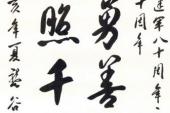 建军八十周年
十周年
勇善
照千
亥年夏
谷